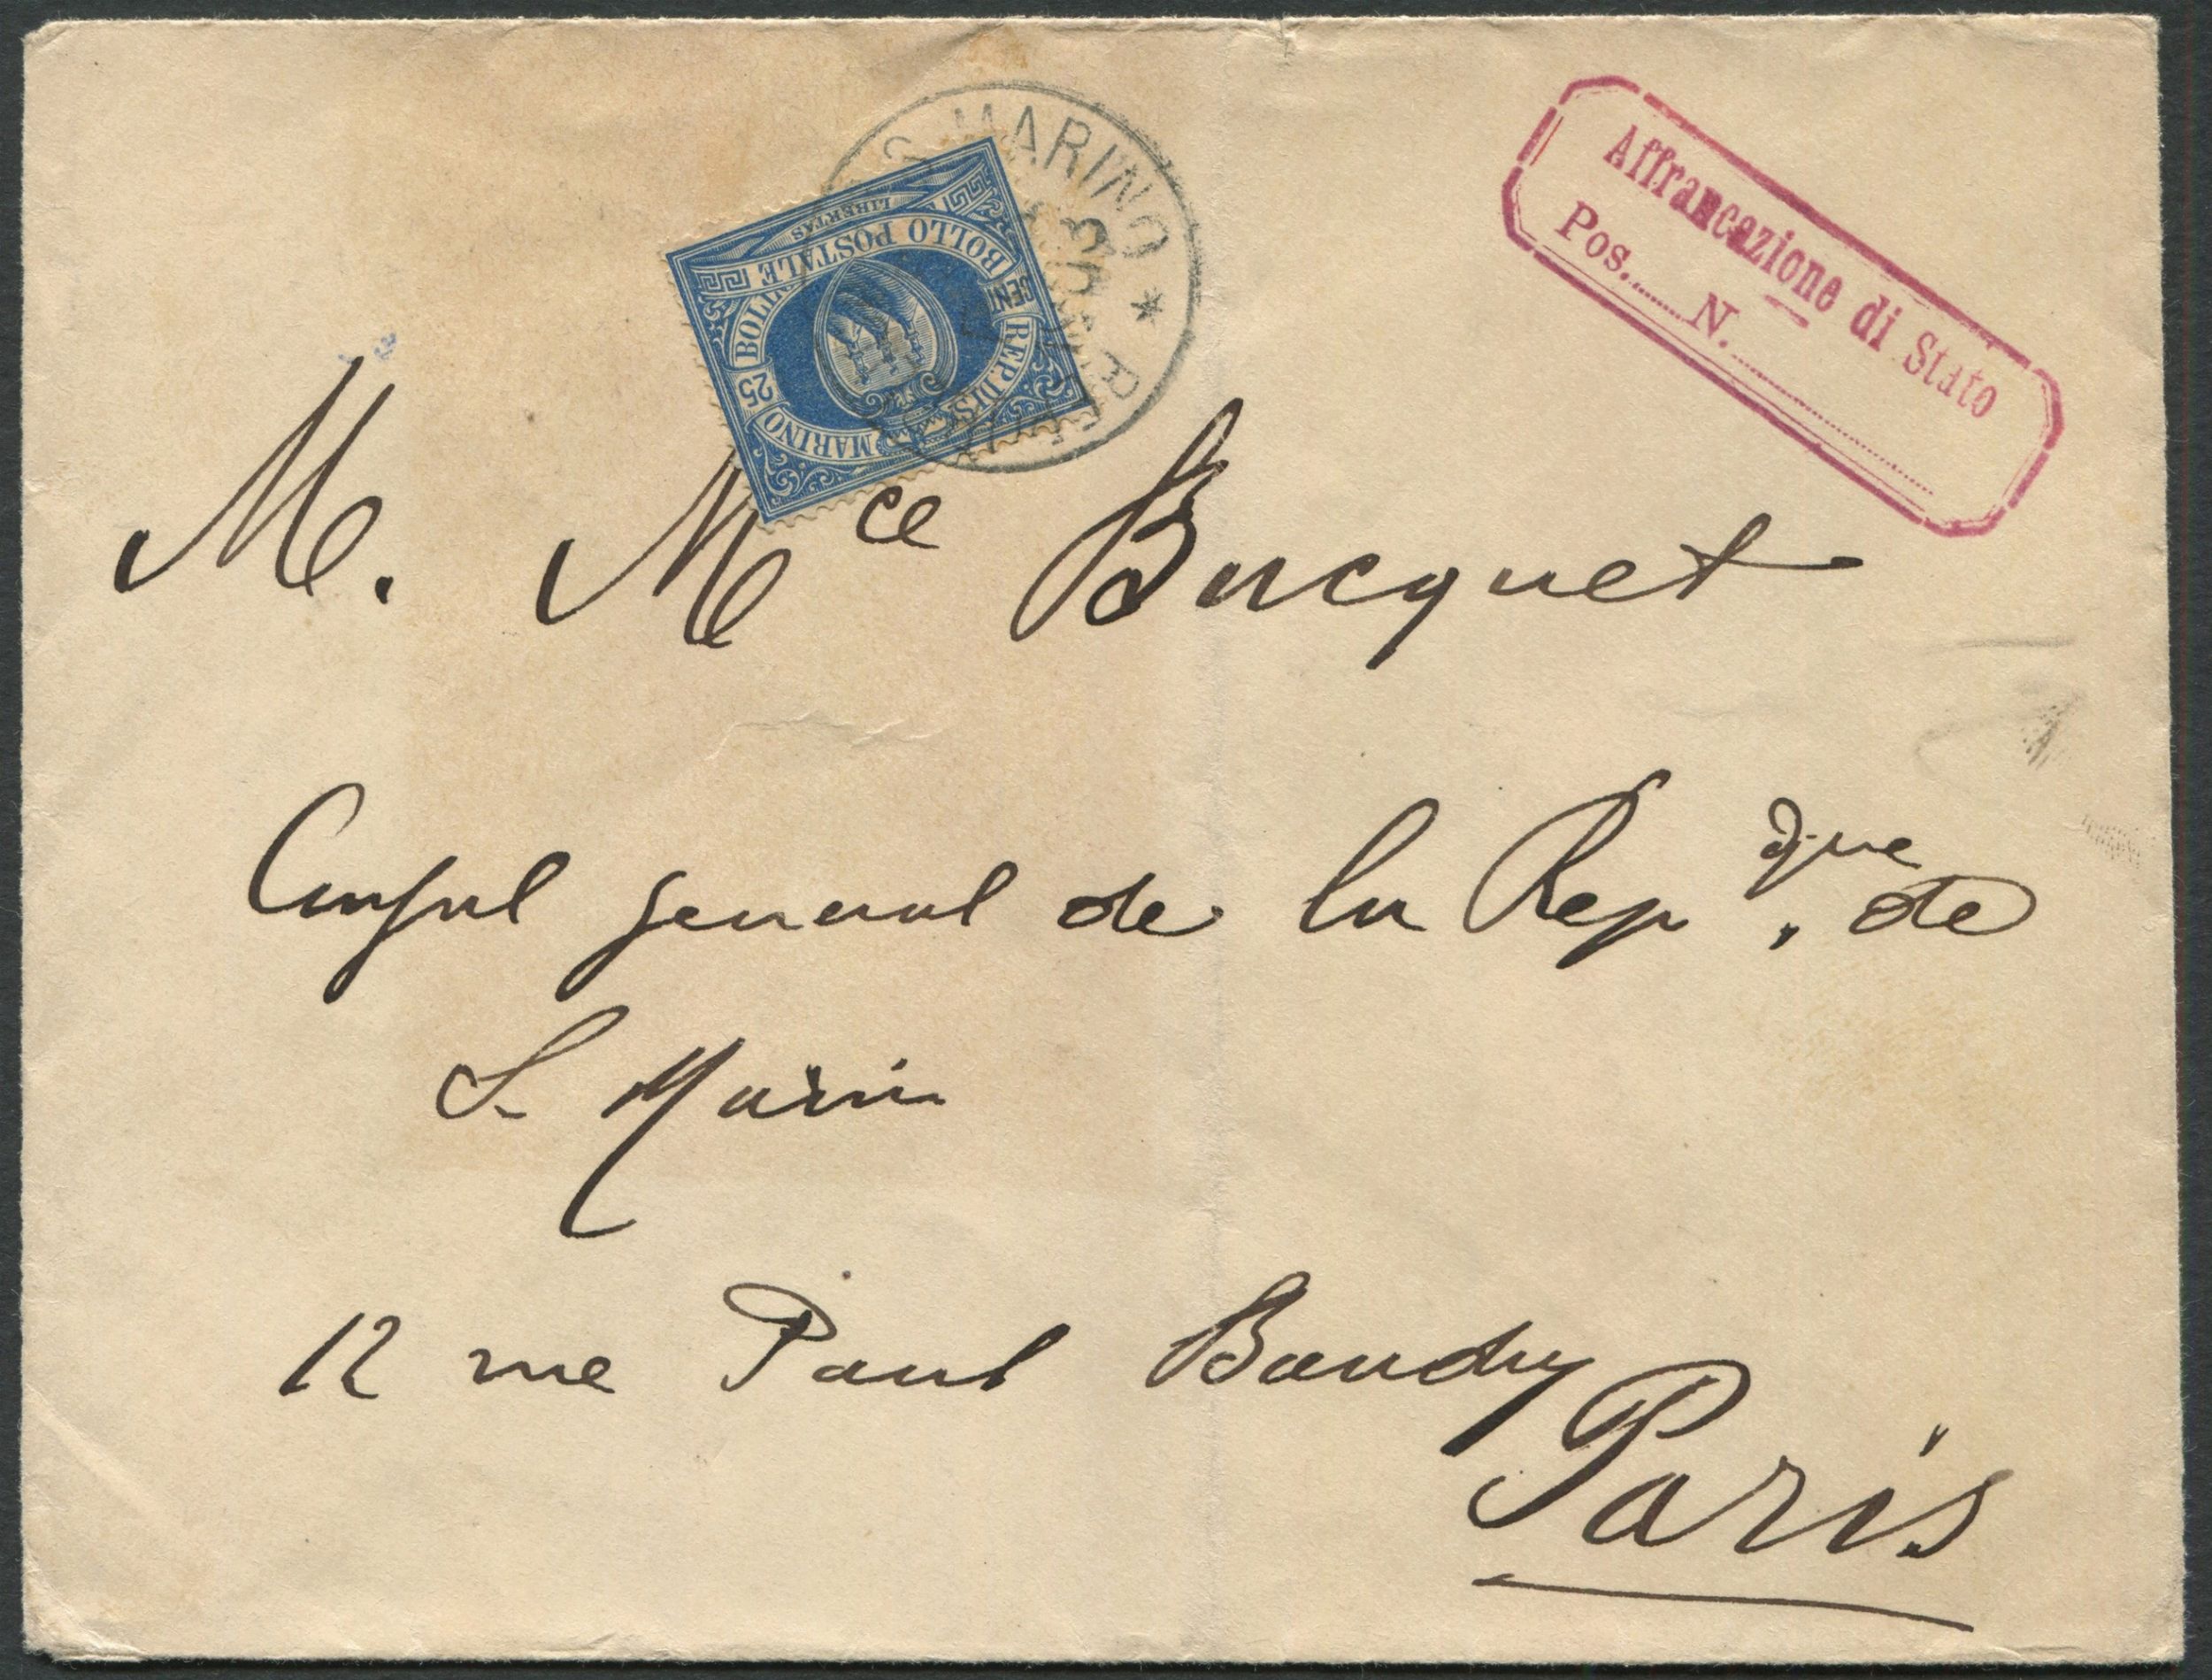 S. MARINO *
Affrancazione di Stato
Pos. N.
LIBERTAS
BOLLO POSTALE
CENT
25
REP. DI S. MARINO
M. Mce Bucquet
Consul general de la Repque. de
S. Marin
12 rue Paul Baudry
Paris